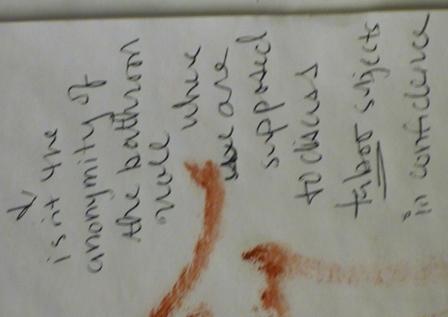 &
isnt the
anonymity of
the bathroom
wall where
we are
supposed
to discuss
taboo subjects
in confidence